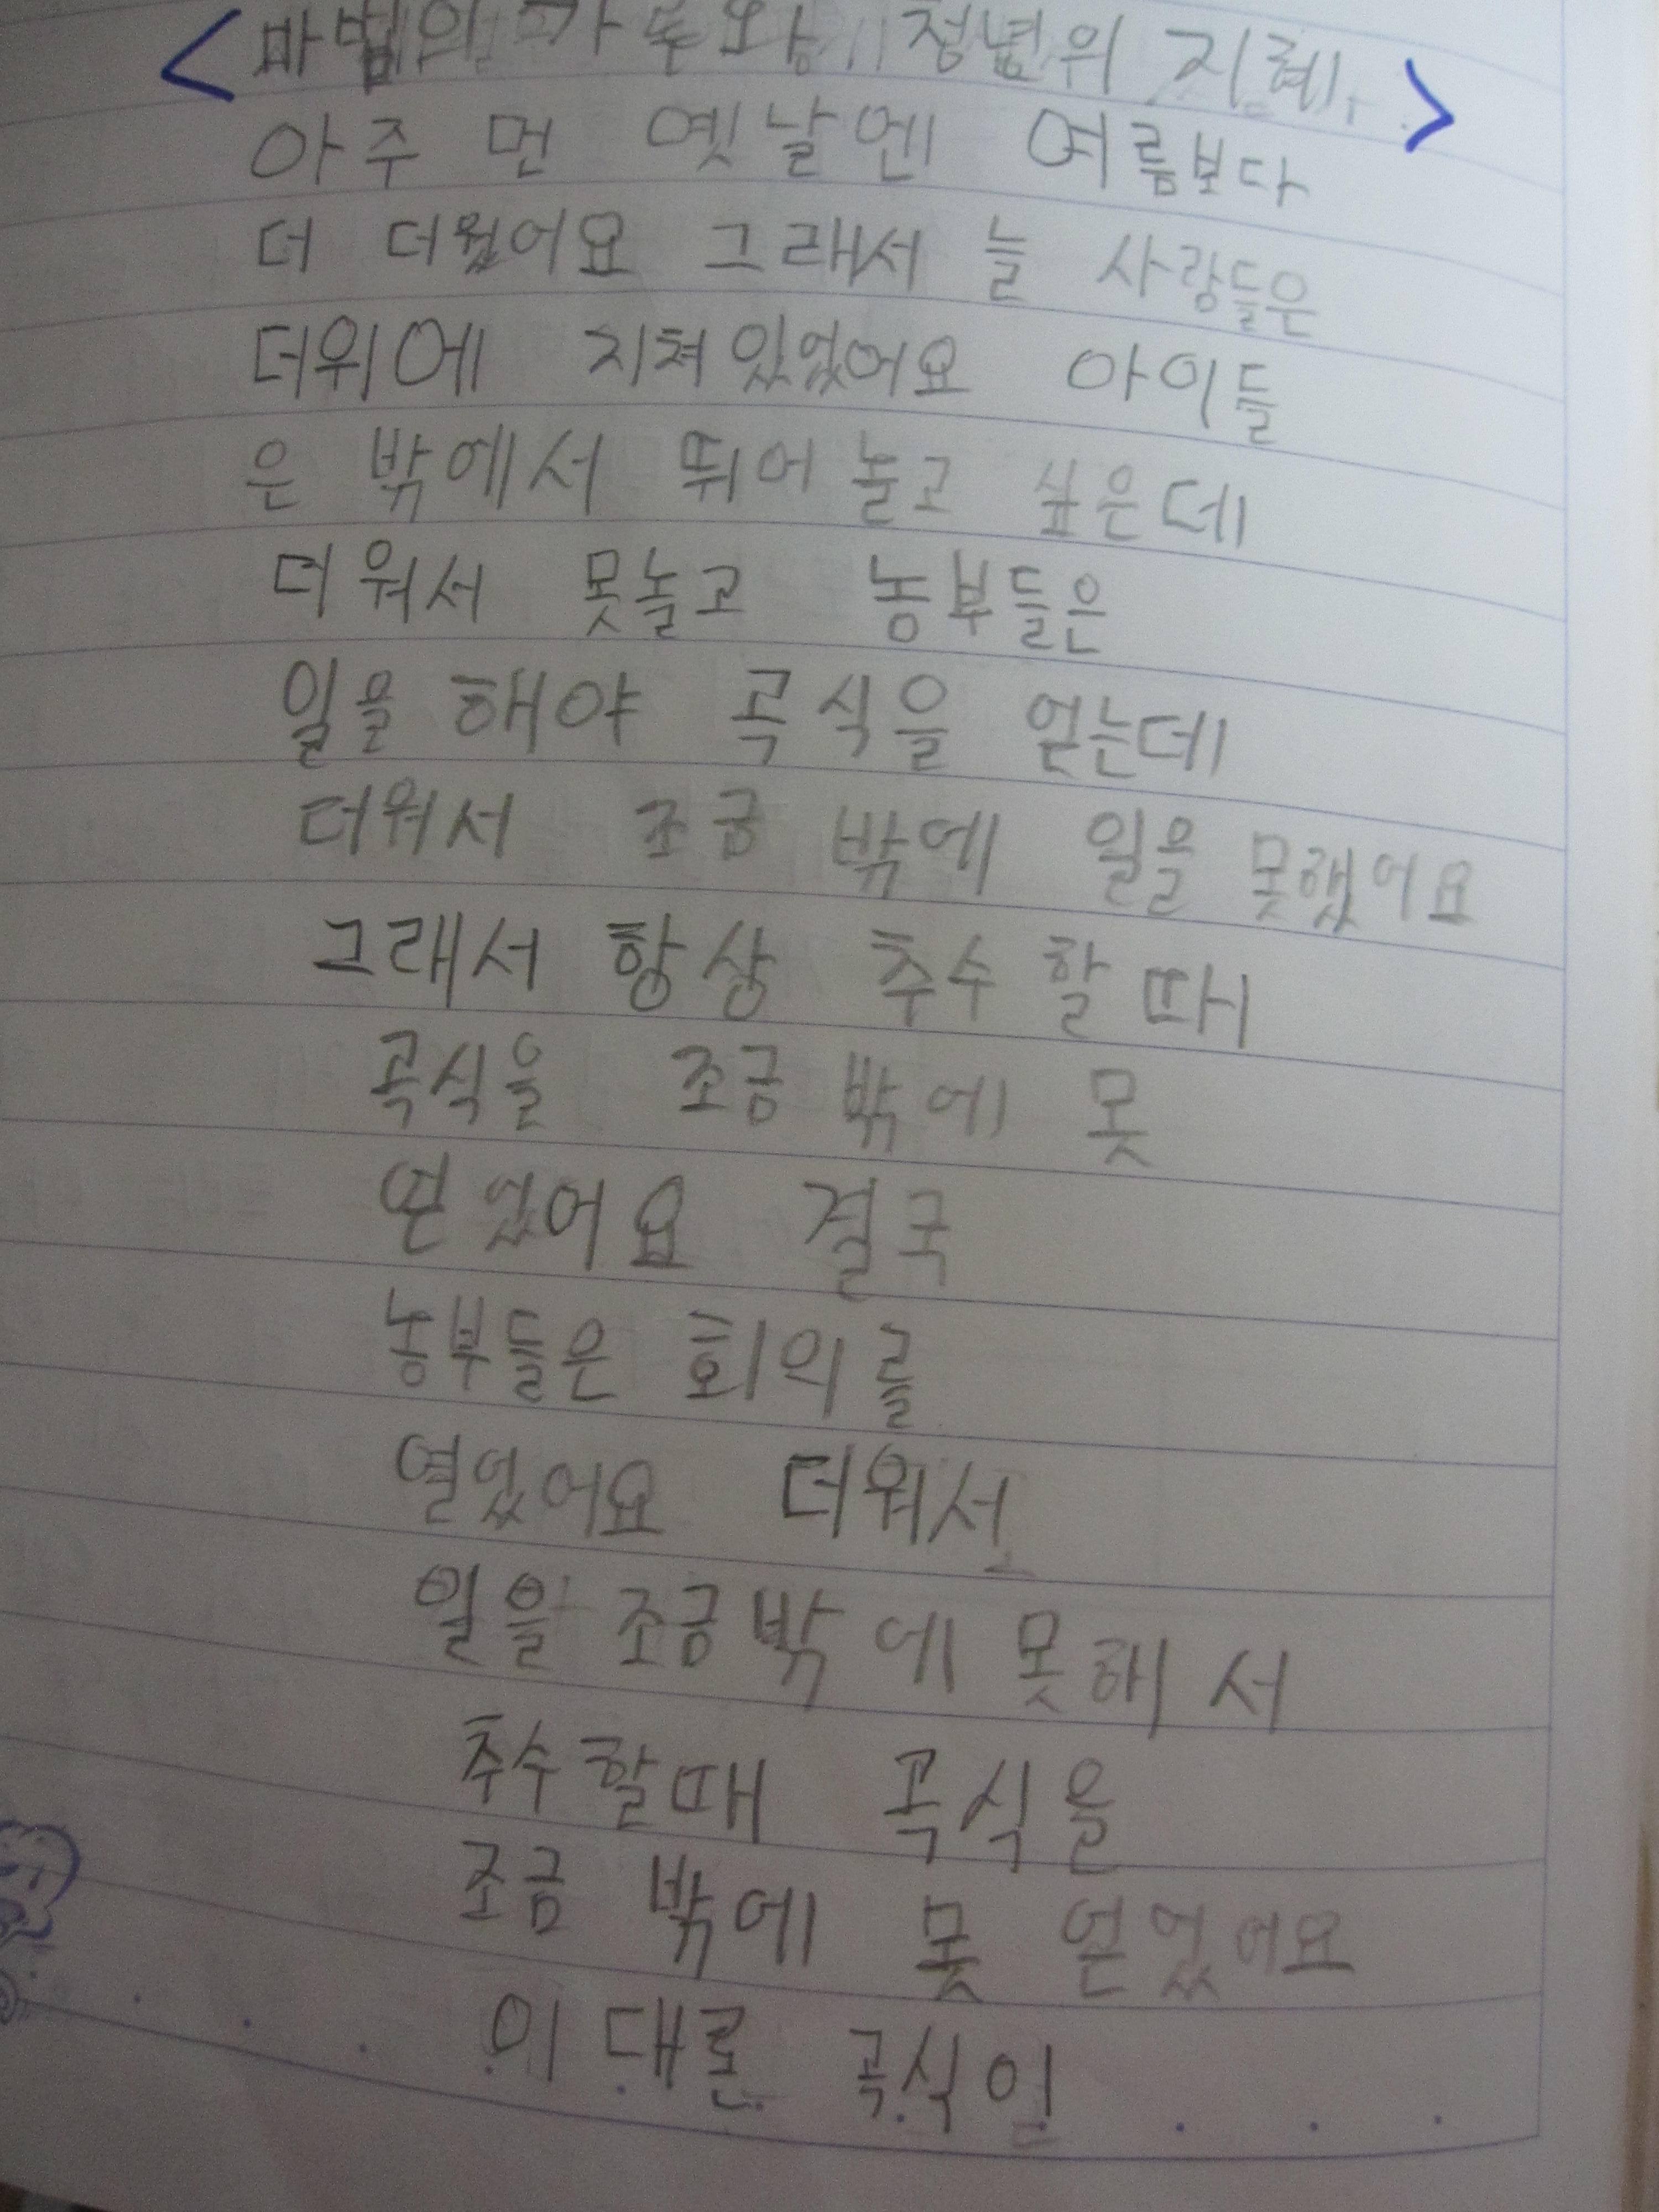 <마법의 가루와 청년위 지혜>
아주 먼 옛날엔 여름보다
더 더웠어요 그래서 늘 사람들은
더위에 지쳐있었어요 아이들
은 밖에서 뛰어 놀고 싶은데
더워서 못놀고 농부들은
일을 해야 곡식을 얻는데
더워서 조금 밖에 일을 못했어요
그래서 항상 추수 할 때
곡식을 조금 밖에 못
얻었어요 결국
농부들은 회의를
열었어요 더워서
일을 조금밖에 못해서
추수할때 곡식을
조금 밖에 못 얻었어요
이대론 곡식이